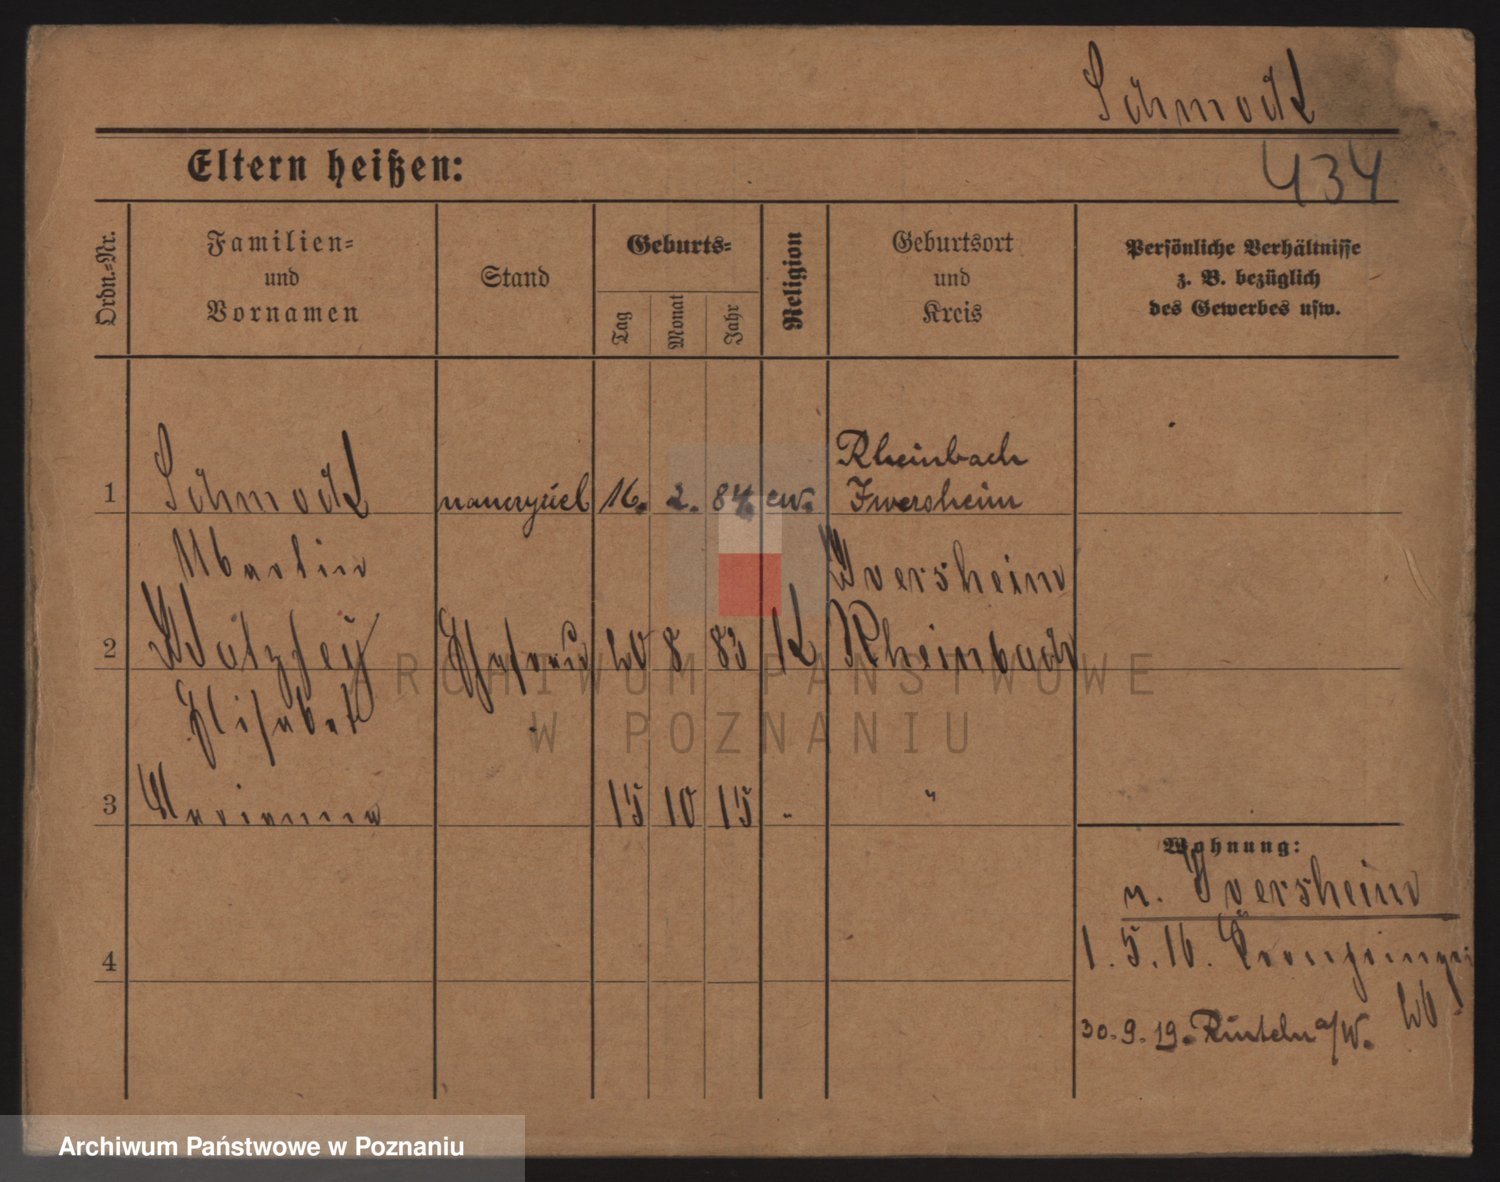 Schmodt
Eltern heißen:
434
Ordn.-Nr.
Familien-
und
Vornamen
Stand
Geburts-
Tag
Monat
Jahr
Religion
Geburtsort
und
Kreis
Persönliche Verhältnisse
z. B. bezüglich
des Gewerbes usw.
1 Schmodt 16. 2. 84. ev. Rheinbach
Iversheim
Martin Iversheim
2 Watzfey Ehefrau 20 8 83 K Rheinbach
Elisabet
3 Marianna 15 10 15 " "
Wohnung:
v. Iversheim
4
1. 5. 16. Kronprinzen
26
30. 9. 19. Rinteln a/W.
ARCHIWUM PAŃSTWOWE
W POZNANIU
Archiwum Państwowe w Poznaniu